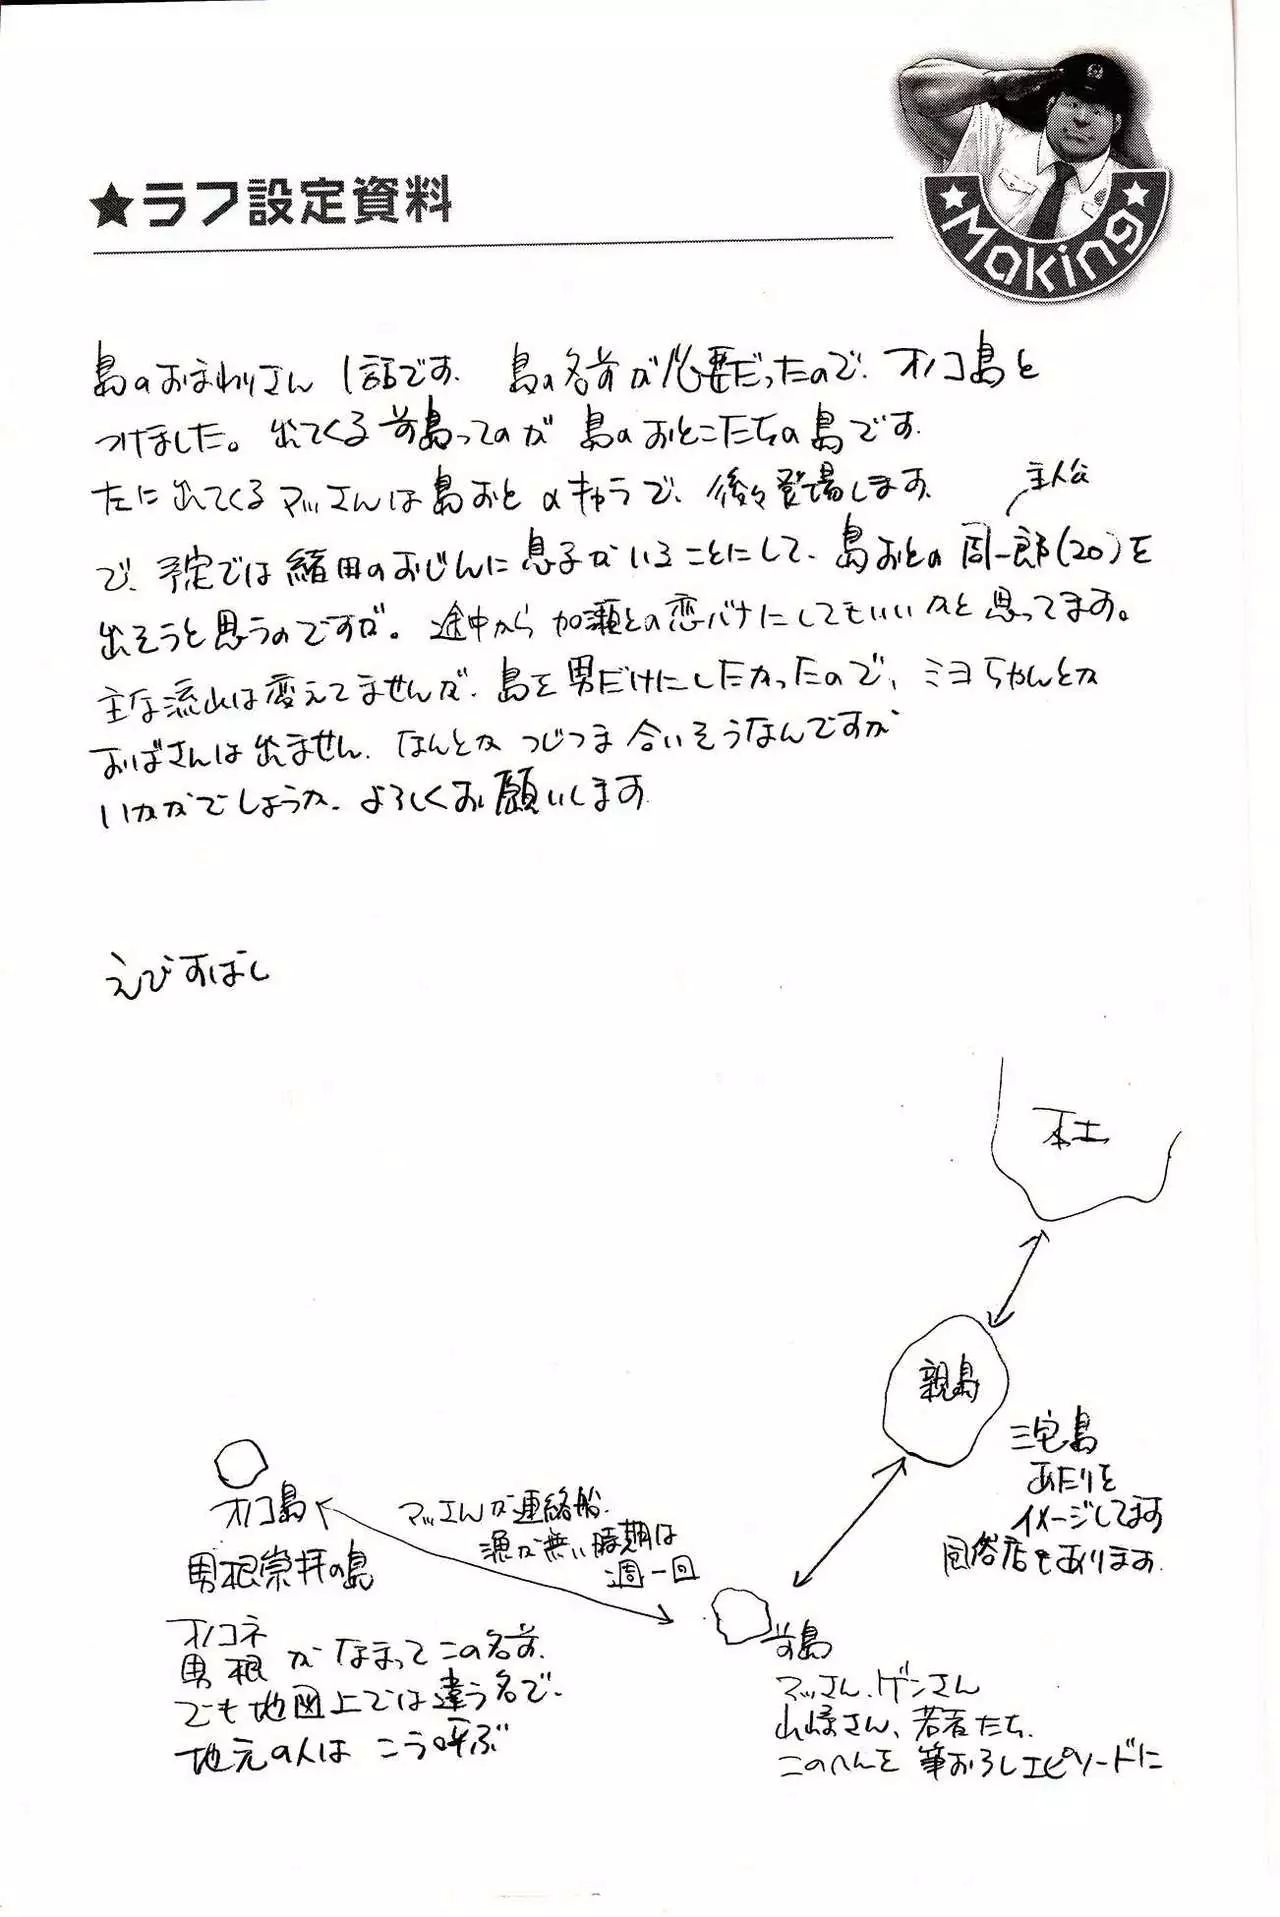 ★ラフ設定資料
Making
島のおまわりさん 1話です. 島の名前が必要だったので、オノコ島と
つけました。出てくる前島ってのが島のおとこたちの島です.
たに出てくるマッさんは島おとのキャラで、後々登場します.
主人公
で、予定では緒田のおじんに息子がいることにして、島おとの周一郎(20)を
出そうと思うのですが。途中から加瀬との恋バナにしてもいいかと思ってます。
主な流れは変えてませんが、島を男だけにしたかったので、ミヨちゃんとか
おばさんは出ません. なんとかつじつま合いそうなんですが
いかがでしょうか. よろしくお願いします.
えびすばし
本土
親島
三宅島
あたりを
イメージしてます
風俗店もあります.
オノコ島
マッさんが連絡船.
漁が無い時期は
週一回
男根崇拝の島
オノコネ
男根がなまってこの名前.
でも地図上では違う名で.
地元の人はこう呼ぶ
前島
マッさん、ゲンさん
山崎さん、若者たち.
このへんを筆おろしエピソードに